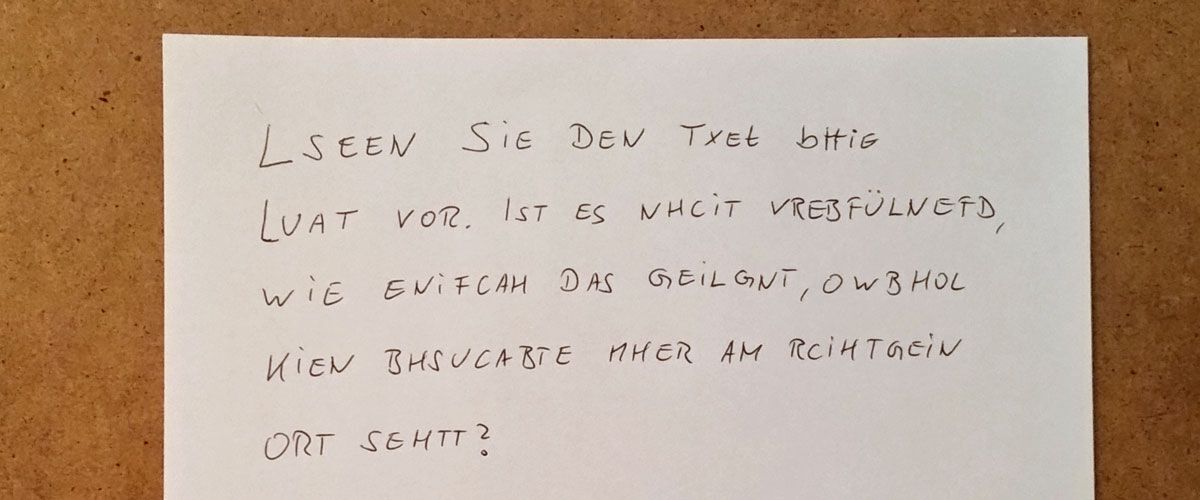 LSEEN SiE DEN TxEt bttiE
LUAT VOR. IST ES NHCiT VREBFÜLNEFD,
WiE ENiFCAH DAS GEiLGNT, OWBHOL
KiEN BHSUCABTE MHER AM RCiHTGEiN
ORT SEHTT?